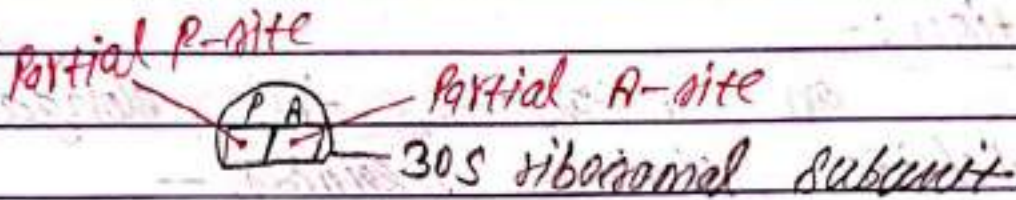 Partial P-site
P A
Partial A-site
30S ribosomal subunit